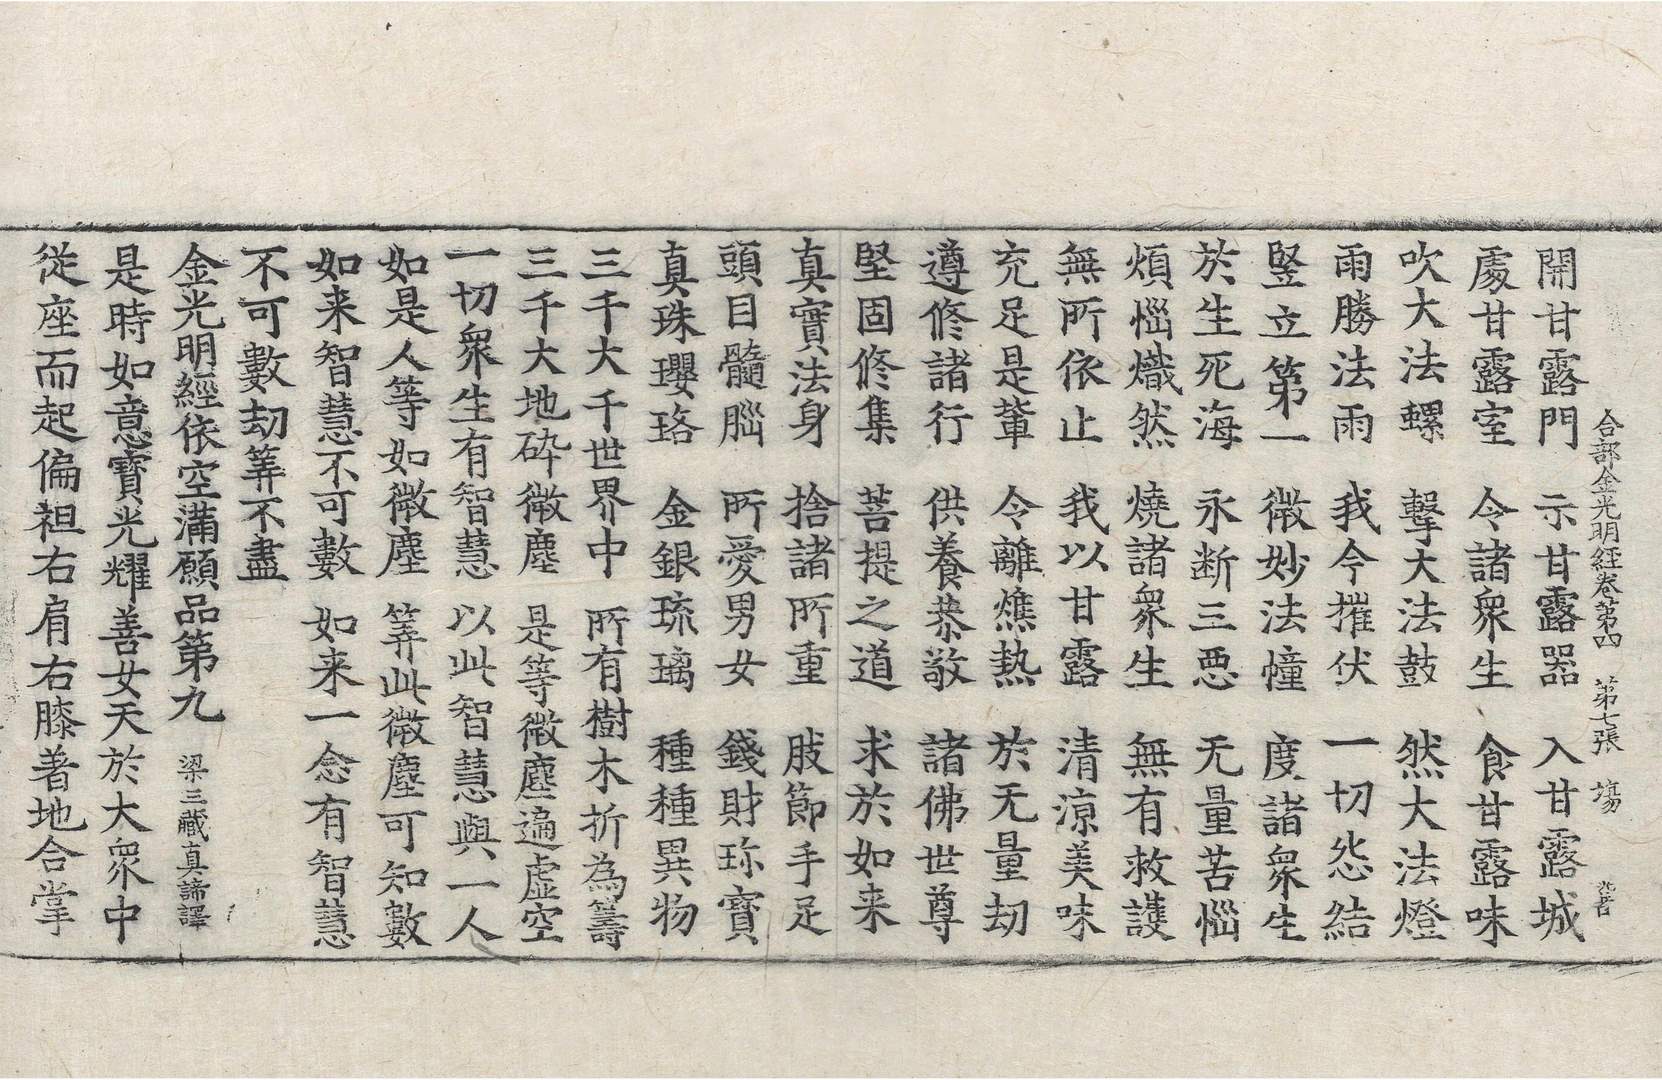 合部金光明経巻第四　第七張　塲
開甘露門　示甘露器　入甘露城
處甘露室　令諸衆生　食甘露味
吹大法螺　擊大法鼓　然大法燈
雨勝法雨　我今摧伏　一切怨結
竪立第一　微妙法幢　度諸衆生
於生死海　永断三惡　无量苦惱
煩惱熾然　燒諸衆生　無有救護
無所依止　我以甘露　清涼美味
充足是輩　令離燋熱　於无量劫
遵修諸行　供養恭敬　諸佛世尊
堅固修集　菩提之道　求於如来
真實法身　捨諸所重　肢節手足
頭目髓腦　所愛男女　錢財珎寶
真珠瓔珞　金銀琉璃　種種異物
三千大千世界中　所有樹木折為籌
三千大地碎微塵　是等微塵遍虛空
一切衆生有智慧　以此智慧與一人
如是人等如微塵　筭此微塵可知數
如来智慧不可數　如来一念有智慧
不可數劫筭不盡
金光明經依空滿願品第九　梁三藏真諦譯
是時如意寶光耀善女天於大衆中
從座而起偏袒右肩右膝著地合掌